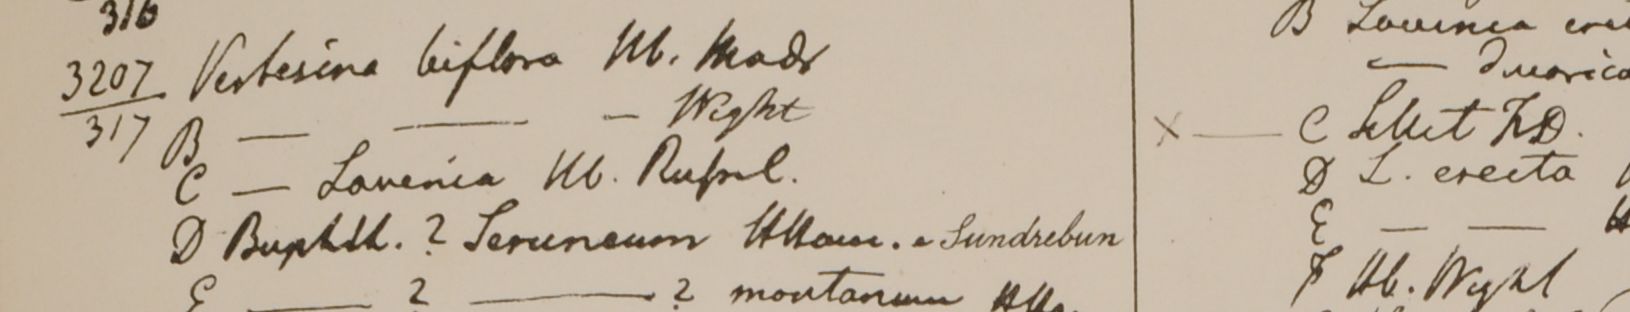 316
3207 Verbesina biflora Hb. Madr
317
B — — — Wight
C — Lavenia Hb. Russel.
D Buphth. ? Seruneum HHam. - Sundrebun
E — ? — ? montanum HHa.
B Lavenia ere
— divarica
C Silhet FD.
D L. erecta
E — — H
F Hb. Wight